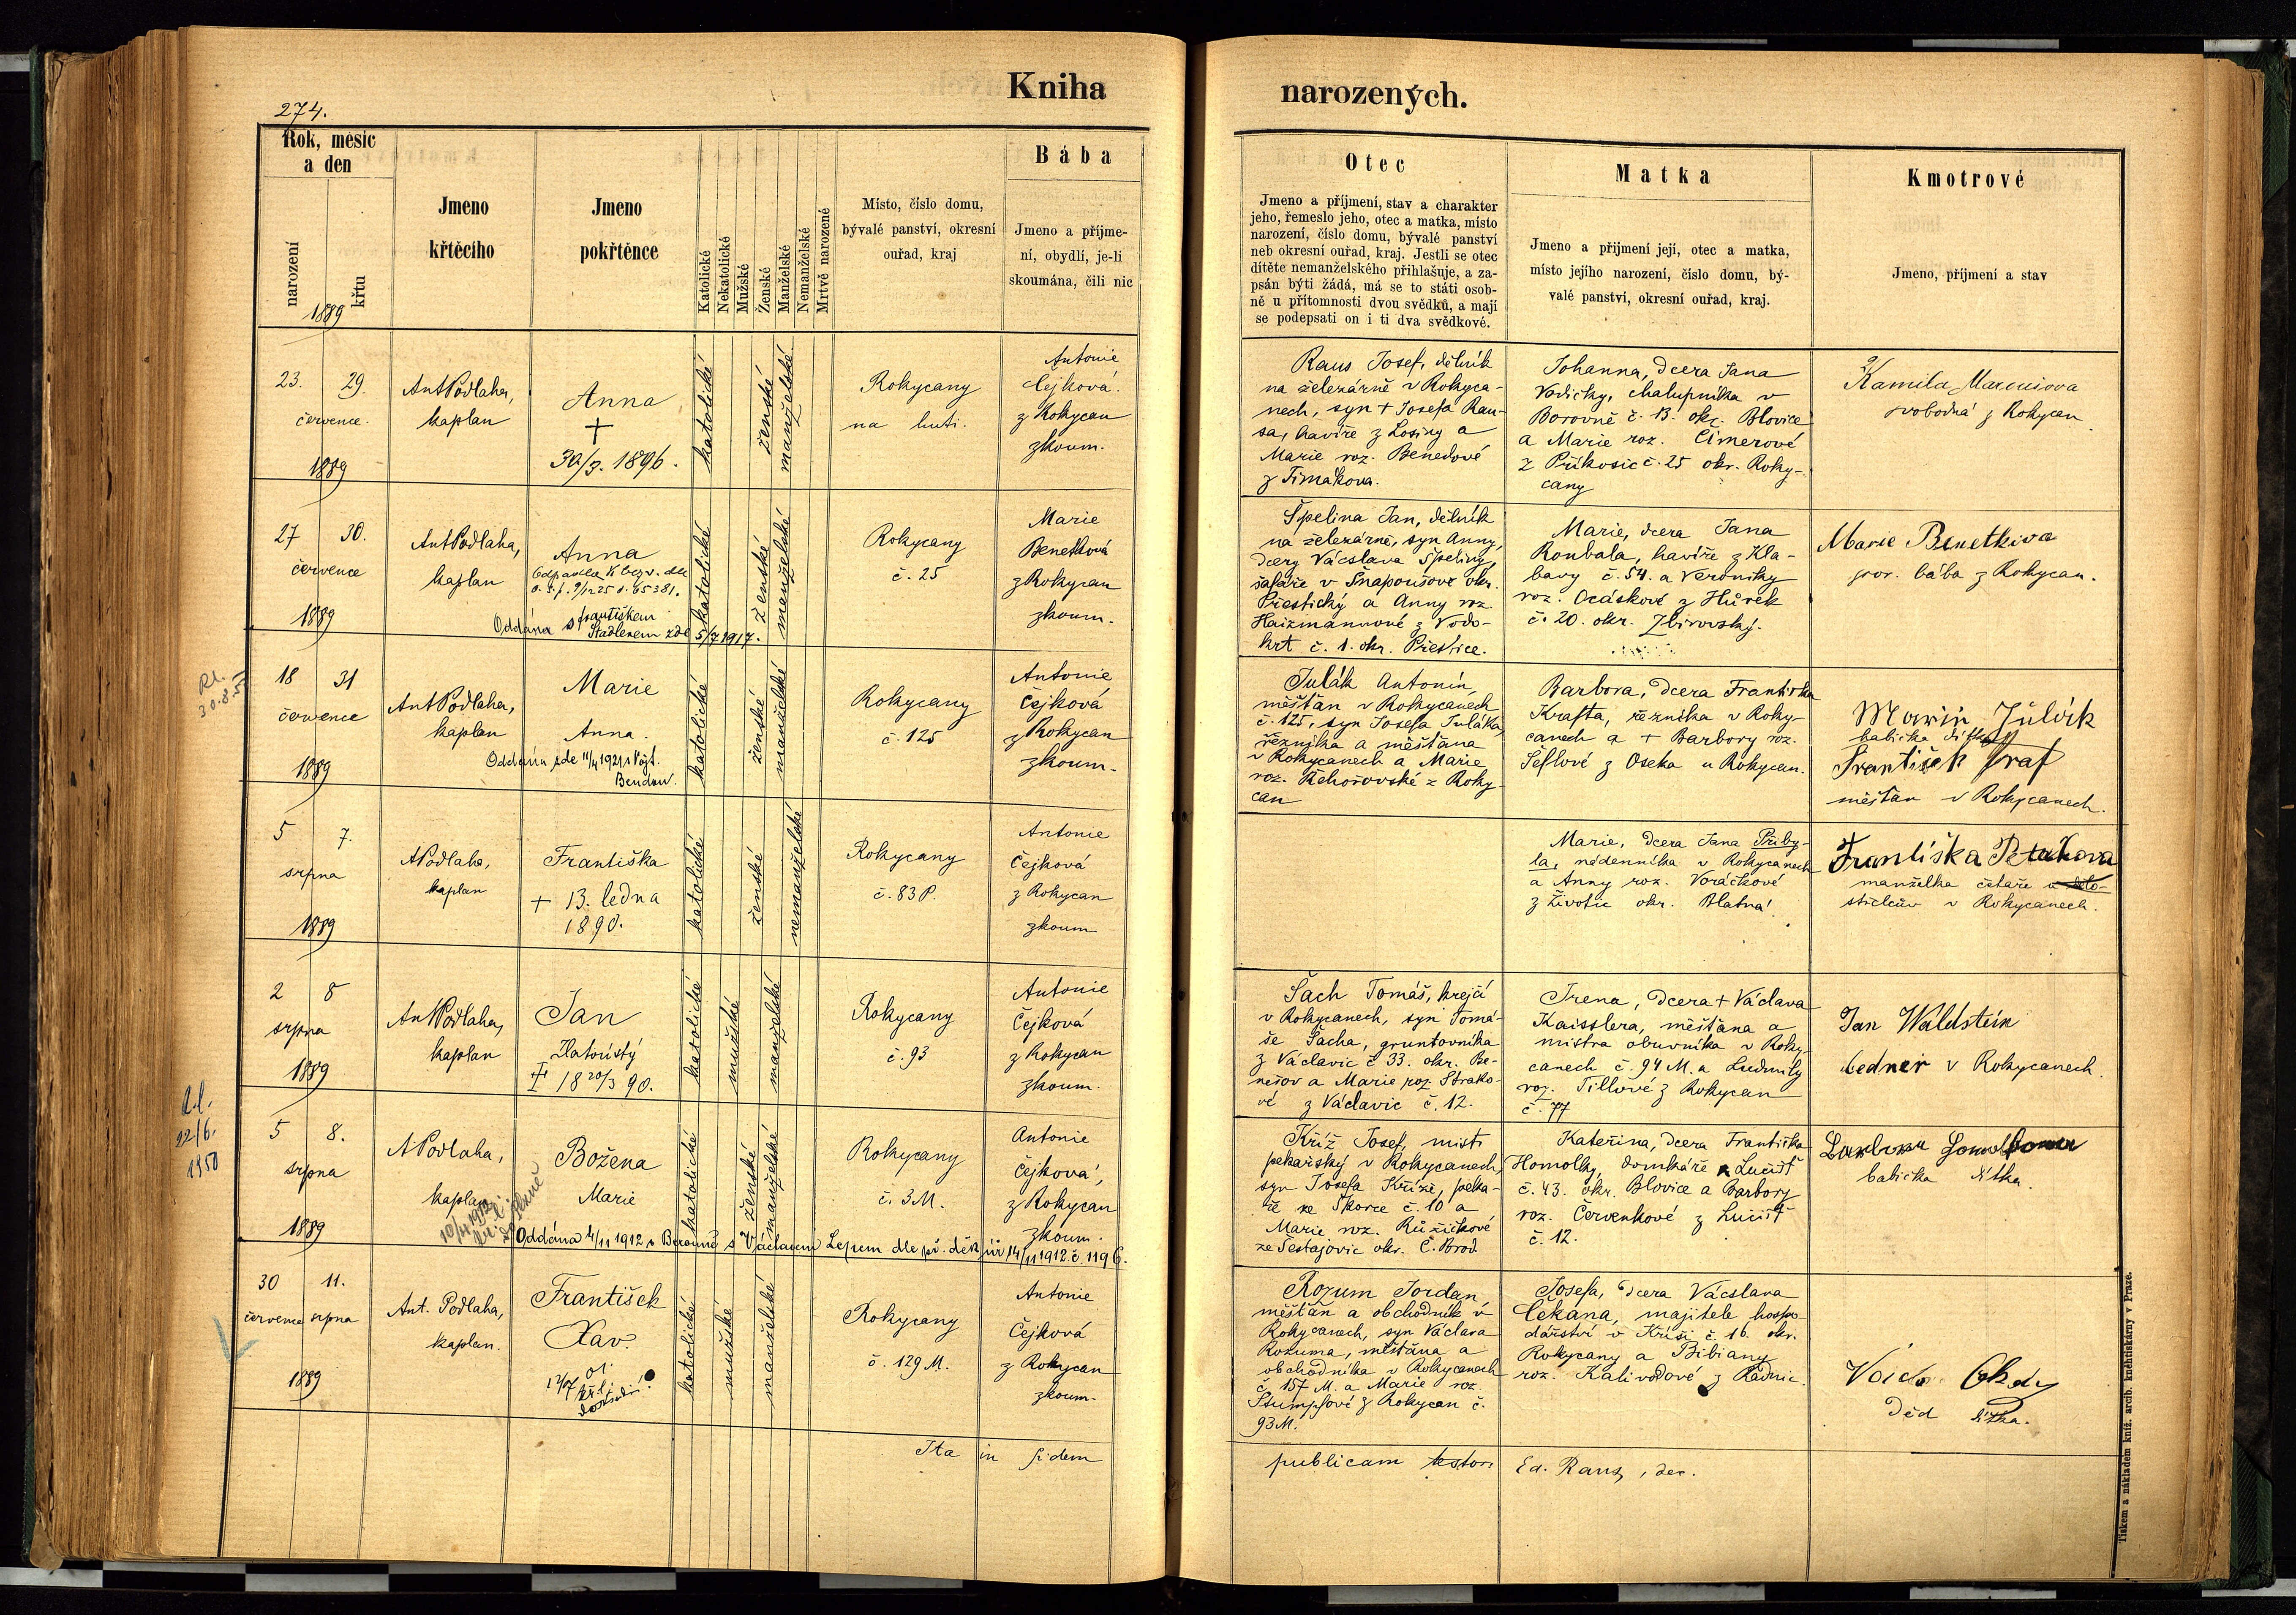 274.
Kniha
narozených.
Rok, měsíc
a den
narození
křtu
1889
Jmeno
křtěcího
Jmeno
pokřtěnce
Katolické
Nekatolické
Mužské
Ženské
Manželské
Nemanželské
Mrtvě narozené
Místo, číslo domu,
bývalé panství, okresní
ouřad, kraj
Bába
Jmeno a příjme-
ní, obydlí, je-li
skoumána, čili nic
Otec
Jmeno a příjmení, stav a charakter
jeho, řemeslo jeho, otec a matka, místo
narození, číslo domu, bývalé panství
neb okresní ouřad, kraj. Jestli se otec
dítěte nemanželského přihlašuje, a za-
psán býti žádá, má se to státi osob-
ně u přítomnosti dvou svědků, a mají
se podepsati on i ti dva svědkové.
Matka
Jmeno a přijmení její, otec a matka,
místo jejího narození, číslo domu, bý-
valé panství, okresní ouřad, kraj.
Kmotrové
Jmeno, příjmení a stav
23. 29.
července.
1889
Ant Podlaha,
kaplan
Anna
+
30/3. 1896.
katolické
ženské
manželské
Rokycany
na huti.
Antonie
Čejková.
z Rokycan
zkoum.
Raus Josef, dělník
na železárně v Rokyca-
nech, syn + Josefa Rau-
sa, havíře z Losiny a
Marie roz. Benedové
z Timakova.
Johanna, dcera Jana
Vodičky, chalupníka v
Borovně č. 13. okr. Blovice
a Marie roz. Cimerové
z Příkosic č. 25 okr. Roky-
cany
Kamila
svobodná z Rokycan.
27 30.
července
1889
Ant Podlaha,
kaplan
Anna
Odpadla k bezv. dle
Oddána s Františkem
Stadlerem zde 5/7 1917.
katolické
ženské
manželské
Rokycany
č. 25
Marie
Benetková
z Rokycan
zkoum.
Špelina Jan, dělník
na železárně, syn Anny,
dcery Vácslava Špeliny,
šafáře v Snapoušově okr.
Přestický a Anny roz.
Haizmannové z Vodo-
krt č. 1. okr. Přestice.
Marie, dcera Jana
Roubala, havíře z Kla-
bavy č. 54. a Veroniky
roz. Ocáskové z Hůrek
č. 20. okr. Zbirovský.
Marie Benetkova
por. bába z Rokycan.
18 31
července
1889
Ant Podlaha,
kaplan
Marie
Anna.
Oddána zde 11/4 1921 s Vojt.
katolické
ženské
manželské
Rokycany
č. 125
Antonie
Čejková
z Rokycan
zkoum.
Julák Antonín,
měšťan v Rokycanech
č. 125, syn Josefa Juláka,
řezníka a měšťana
v Rokycanech a Marie
roz. Řehořovské z Roky-
can
Barbora, dcera Františka
Krafta, řezníka v Roky-
canech a + Barbory roz.
Šeflové z Oseka u Rokycan.
Marie Julák
babička dítka
František Graf
měšťan v Rokycanech.
5 7.
srpna
1889
APodlaha,
kaplan
Františka
+ 13. ledna
1890.
katolické
ženské
nemanželské
Rokycany
č. 83 P.
Antonie
Čejková
z Rokycan
zkoum
Marie, dcera Jana Přiby-
la, nádenníka v Rokycanech
a Anny roz. Voráčkové
z Životic okr. Blatná.
Františka
manželka četaře
v Rokycanech.
2 8
srpna
1889
Ant Podlaha,
kaplan
Jan
Zlatoústý
18 20/3 90.
katolické
mužské
manželské
Rokycany
č. 93
Antonie
Čejková
z Rokycan
zkoum.
Šach Tomáš, krejčí
v Rokycanech, syn Tomá-
še Šacha, gruntovníka
z Václavic č 33. okr. Be-
nešov a Marie roz. Strako-
vé z Václavic č. 12.
Irena, dcera + Václava
Kaisslera, měšťana a
mistra obuvníka v Roky-
canech č. 94 M. a Ludmily
roz. Tillové z Rokycan
č. 77
Jan Waldstein
bedner v Rokycanech.
22/6.
1950
5 8.
srpna
1889
APodlaha,
kaplan
Božena
Marie
Oddána 4/11 1912 v Berouně s Václavem Lepem dle př. děk. úř 14/11 1912. č. 1196.
katolické
ženské
manželské
Rokycany
č. 3 M.
Antonie
Čejková,
z Rokycan
zkoum.
Kříž Josef, mistr
pekařský v Rokycanech,
syn Josefa Kříže, peka-
ře ze Škorce č. 10 a
Marie roz. Růžičkové
ze Šestajovic okr. Č. Brod.
Kateřina, dcera Františka
Homolky, domkáře z Lučišť
č. 43. okr. Blovice a Barbory
roz. Červenkové z Lučišť
č. 12.
babička dítka.
30 11.
července srpna
1889
Ant. Podlaha,
kaplan.
František
Xav.
katolické
mužské
manželské
Rokycany
č. 129 M.
Antonie
Čejková
z Rokycan
zkoum.
Rozum Jordan,
měšťan a obchodník v
Rokycanech, syn Václava
Rozuma, měšťana a
obchodníka v Rokycanech
č. 157 M. a Marie roz.
Štumpfové z Rokycan č.
93 M.
Josefa, dcera Vácslava
Čekana, majitele hospo-
dářství v Kříši č. 16. okr.
Rokycany a Bibiany
roz. Kalivodové z Radnic.
děd dítka.
Ita in fidem
publicam testor: Ed. Raus, děk.
Tiskem a nákladem kníž. arcib. knihtiskárny v Praze.